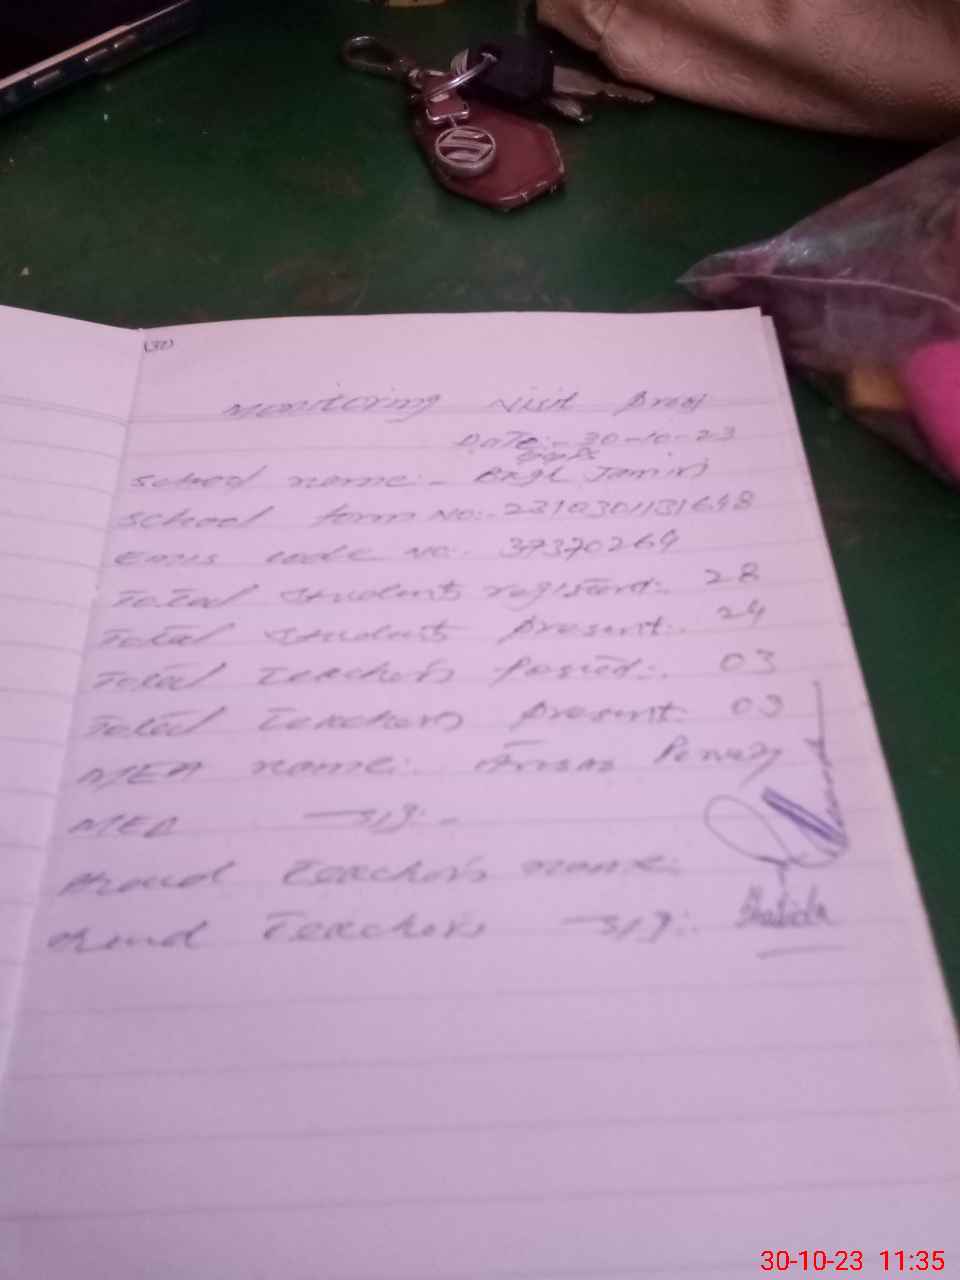 (32)
Monitoring Visit Proof
Date:- 30-10-23
GGPS
School name:- Jamiri
School form No:- 2310301131648
Emis code No:- 37370264
Total students registerd:- 28
Total students present:- 24
Total teachers Posted:- 03
Total teachers present:- 03
MEA name:-
MEA sig:-
Head Teachers name:
Head Teachers sig:-
30-10-23 11:35